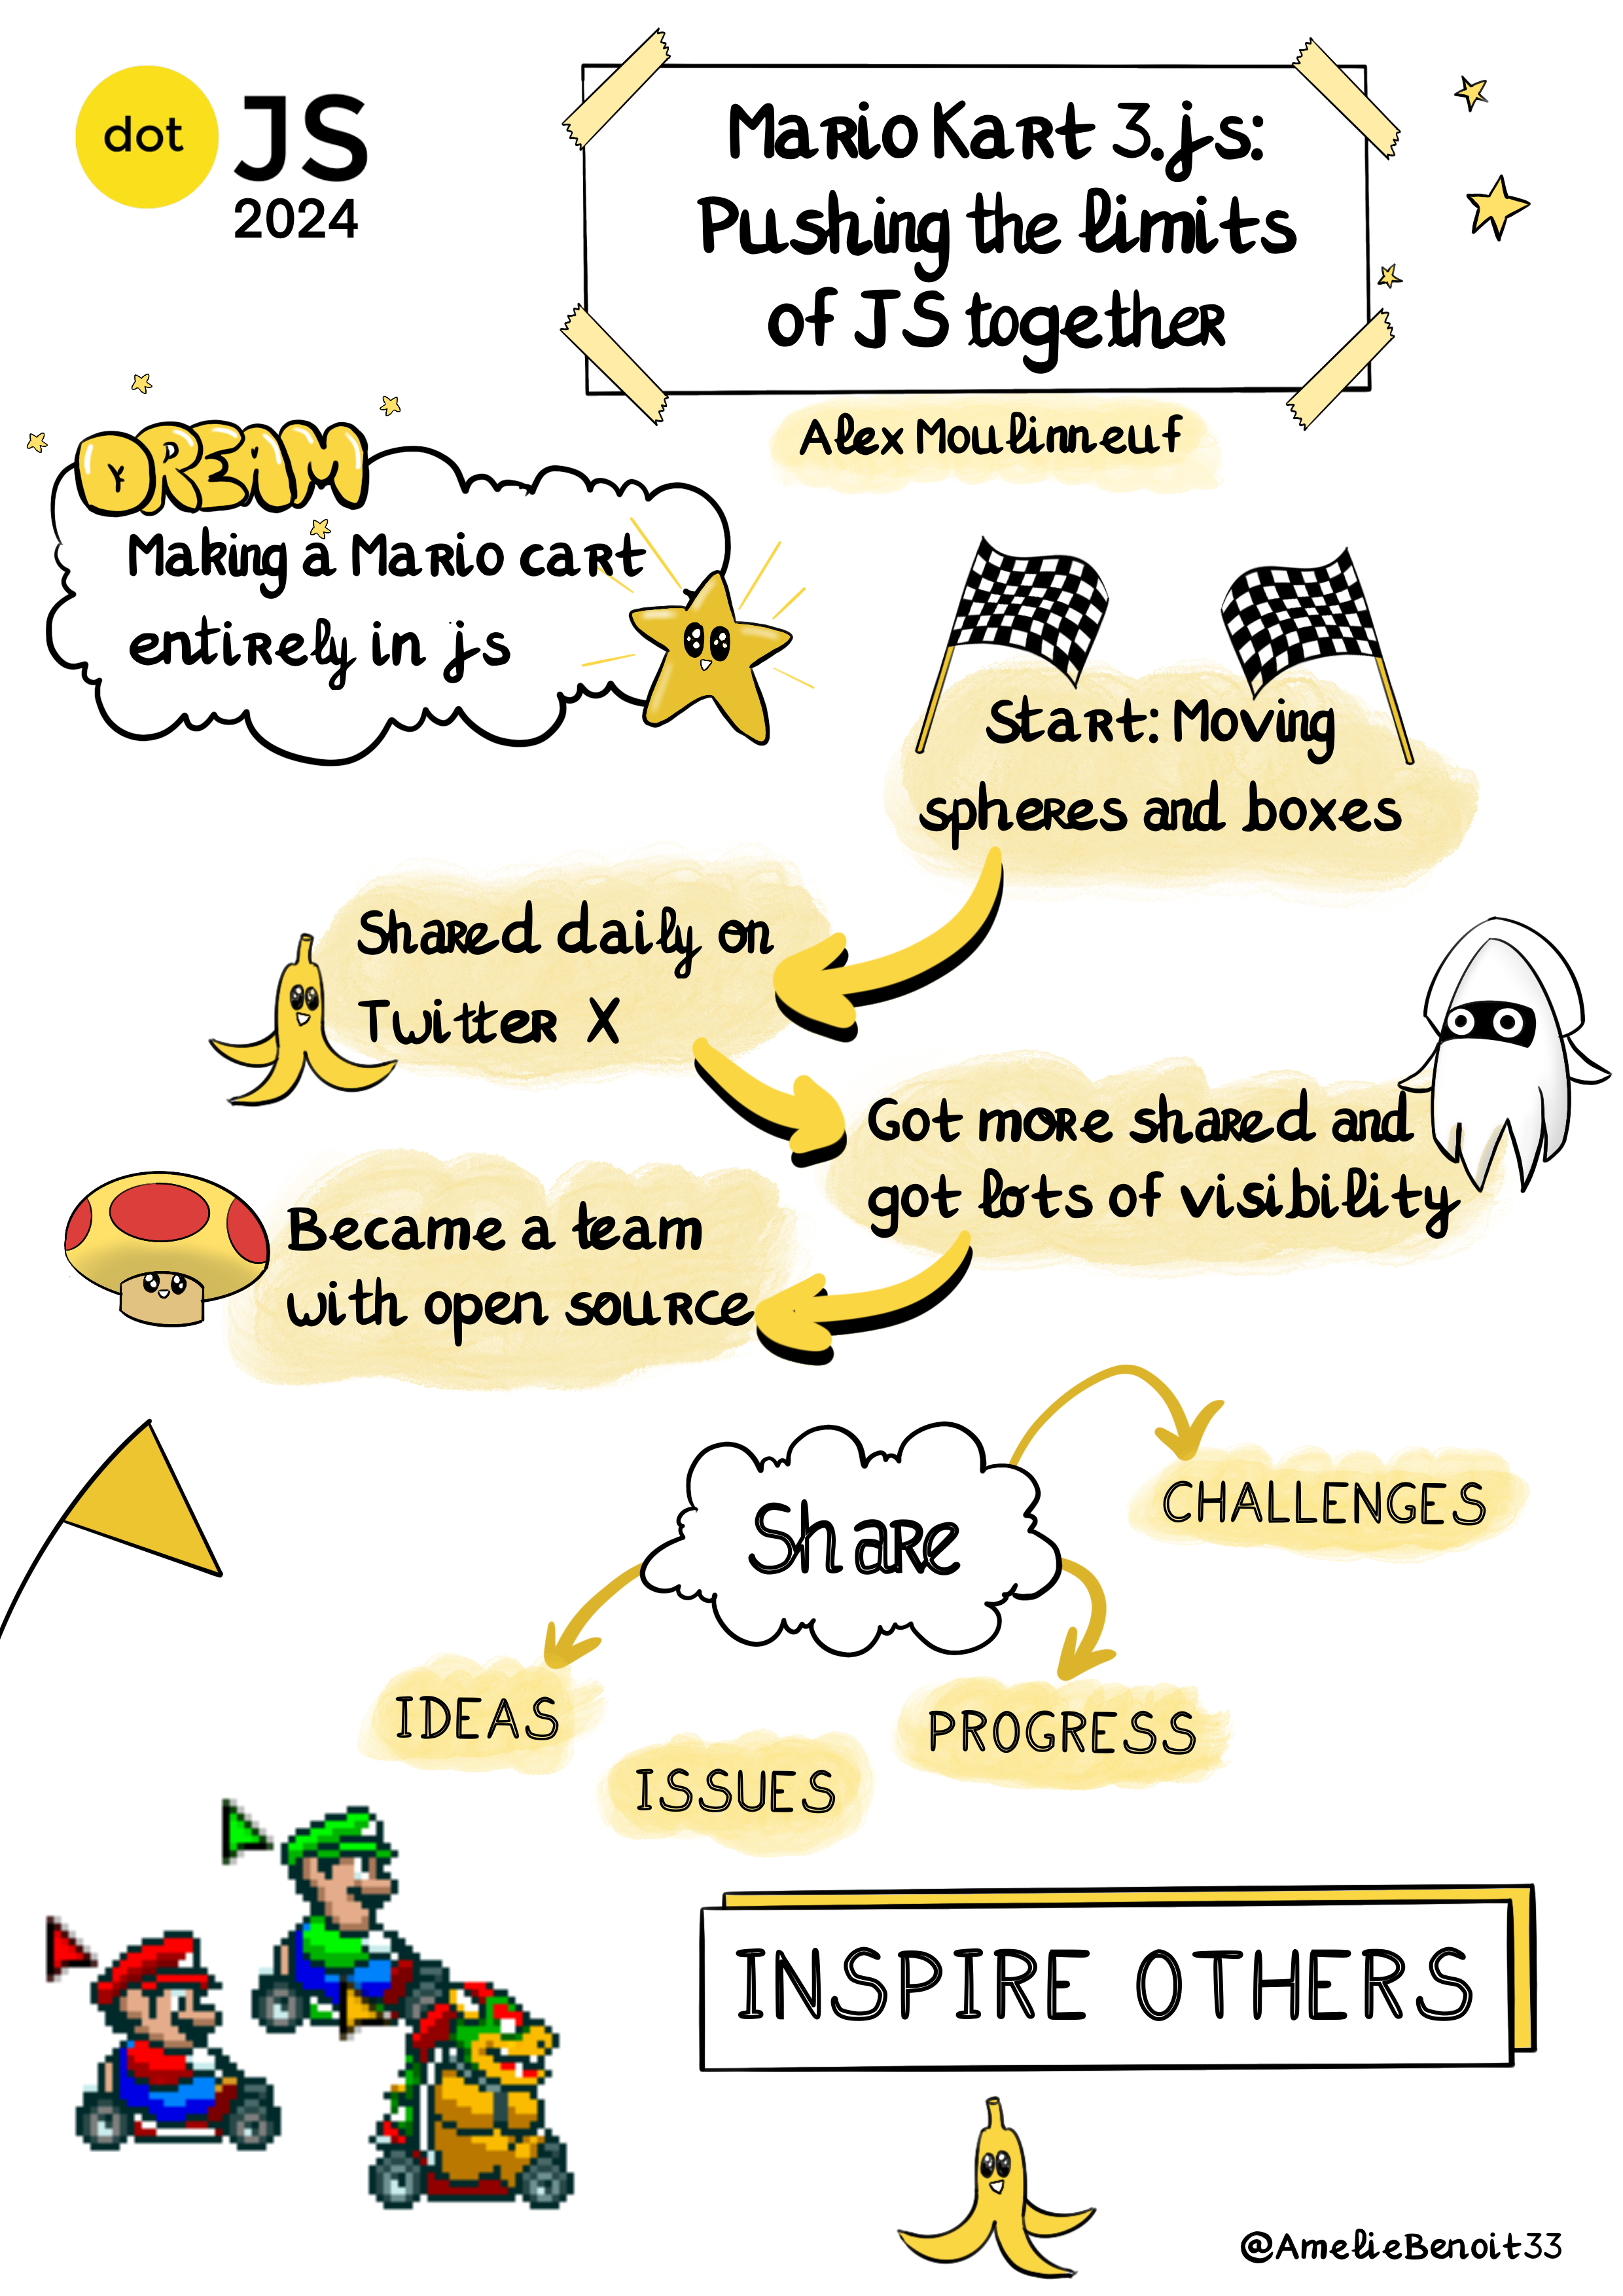 dot JS
2024
Mario Kart 3.js:
Pushing the limits
of JS together
Alex Moulinneuf
DREAM
Making a Mario cart
entirely in js
Start: Moving
spheres and boxes
Shared daily on
Twitter X
Got more shared and
got lots of visibility
Became a team
with open source
Share
CHALLENGES
IDEAS
PROGRESS
ISSUES
INSPIRE OTHERS
@AmelieBenoit33